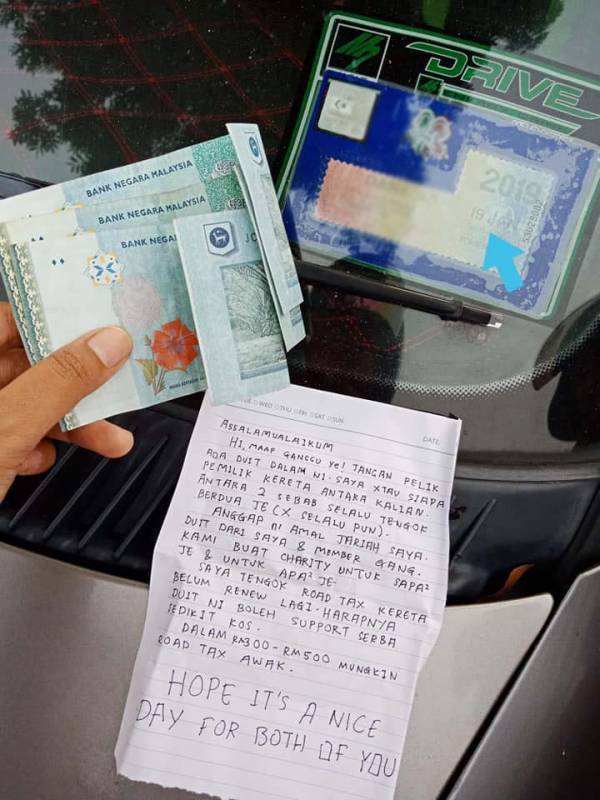 DRIVE
20
19 JAN
BANK NEGARA MALAYSIA
BANK NEGARA MALAYSIA
BANK NEGAR
WED THU FRI SAT SUN
DATE
ASSALAMUALAIKUM
HI, MAAF GANGGU YE! JANGAN PELIK
ADA DUIT DALAM NI. SAYA XTAU SIAPA
PEMILIK KERETA ANTARA KALIAN.
ANTARA 2 SEBAB SELALU TENGOK
BERDUA JE (X SELALU PUN).
ANGGAP NI AMAL JARIAH SAYA.
DUIT DARI SAYA & MEMBER GANG.
KAMI BUAT CHARITY UNTUK SAPA²
JE & UNTUK APA² JE.
SAYA TENGOK ROAD TAX KERETA
BELUM RENEW LAGI. HARAPNYA
DUIT NI BOLEH SUPPORT SERBA
SEDIKIT KOS.
DALAM RM300-RM500 MUNGKIN
ROAD TAX AWAK.
HOPE IT'S A NICE
DAY FOR BOTH OF YOU